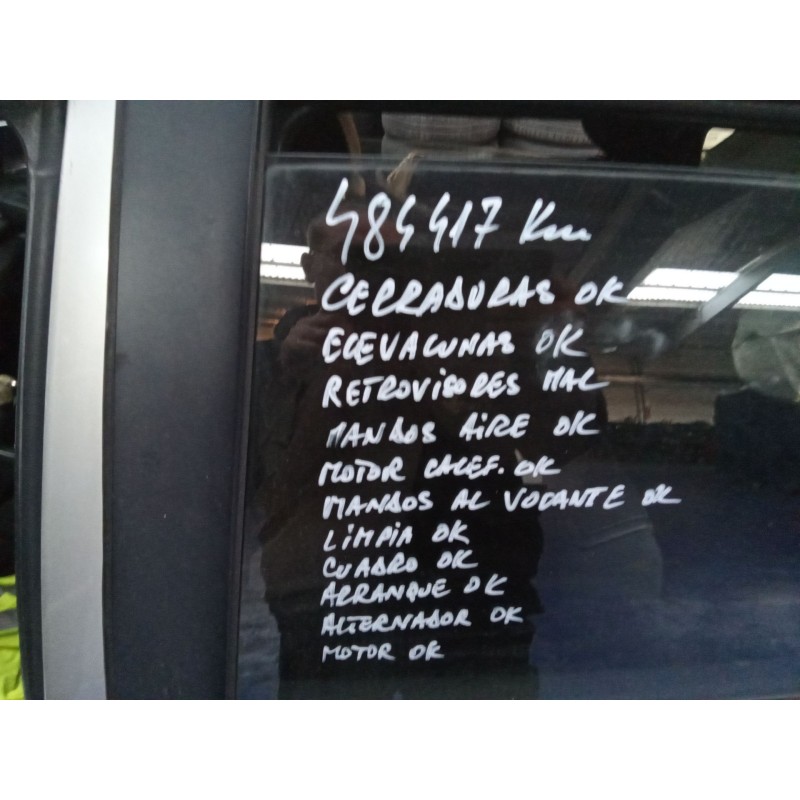 484417 Km
CERRADURAS OK
ELEVALUNAS OK
RETROVISORES MAL
MANDOS AIRE OK
MOTOR CALEF. OK
MANDOS AL VOLANTE OK
LIMPIA OK
CUADRO OK
ARRANQUE OK
ALTERNADOR OK
MOTOR OK